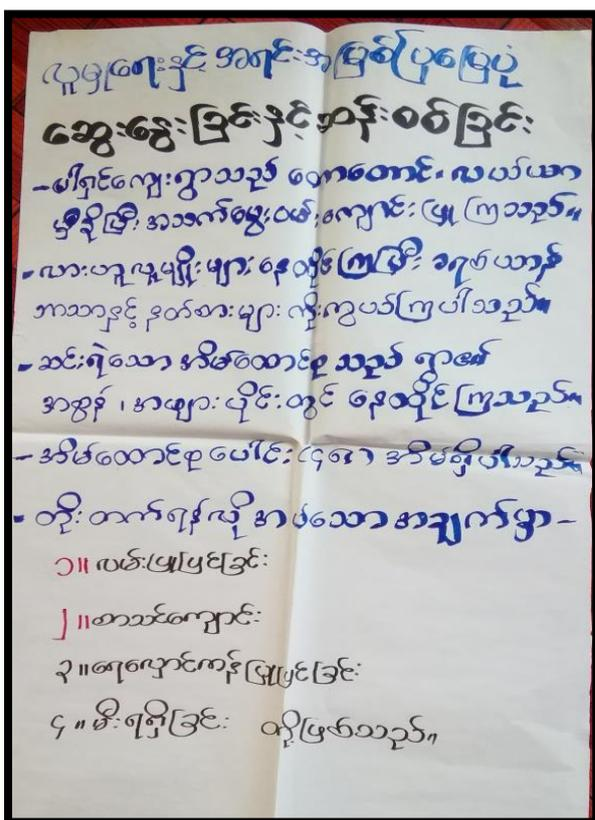 လူမှုရေးနှင့် အရင်းအမြစ်ပြမြေပုံ
ဆွေးနွေးခြင်းနှင့်ဆန်းစစ်ခြင်း
- ပါရှင်ကျေးရွာသည် တောတောင်၊ လယ်ယာ
မှီခိုပြီး အသက်မွေးဝမ်းကျောင်း ပြုကြသည်။
- လားဟူလူမျိုးများ နေထိုင်ကြပြီး ခရစ်ယာန်
ဘာသာနှင့် နတ်စားများ ကိုးကွယ်ကြပါသည်။
- ဆင်းရဲသော အိမ်ထောင်စု သည် ရွာ၏
အစွန်၊ အဖျား ပိုင်းတွင် နေထိုင်ကြသည်။
- အိမ်ထောင်စုပေါင်း (၄၈) အိမ်ရှိပါသည်။
- တိုးတက်ရန်လိုအပ်သောအချက်မှာ -
၁။ လမ်းပြုပြင်ခြင်း
၂။ စာသင်ကျောင်း
၃။ ရေလှောင်ကန်ပြုပြင်ခြင်း
၄။ မီးရရှိခြင်း တို့ဖြစ်သည်။